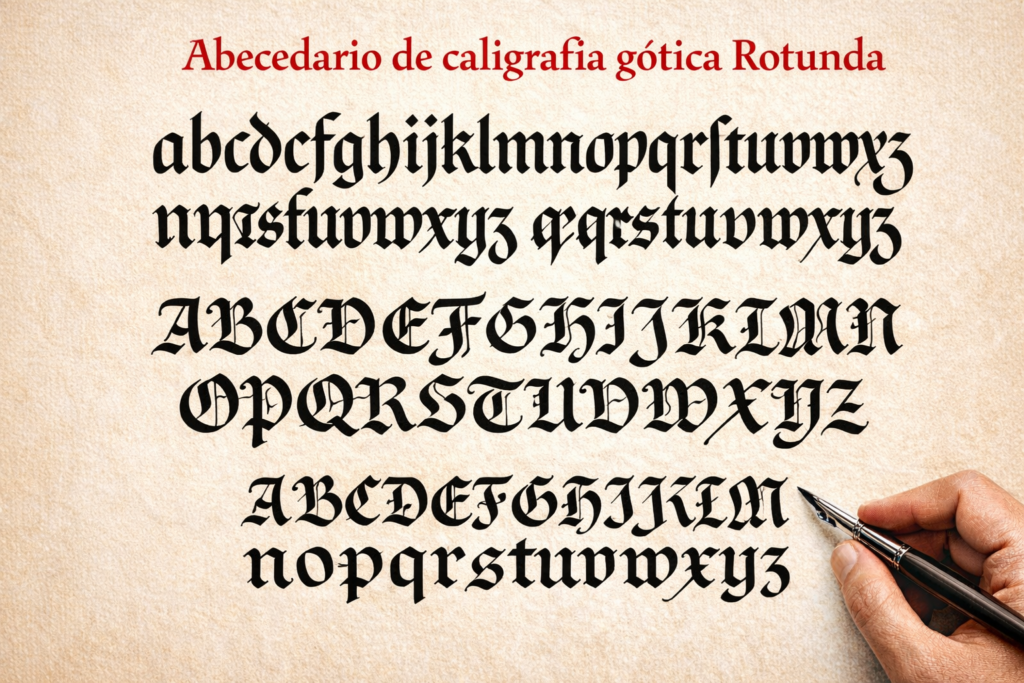 Abecedario de caligrafia gótica Rotunda
abcdcfghijklmnopqrſtuvwxyz
nqɪsfuvwxyz qrqrstuvwxyz
ABCDEFGHIJKLMN
OPQRSTUVWXYZ
ABCDEFGHIJKLM
nopqrstuvwxyz